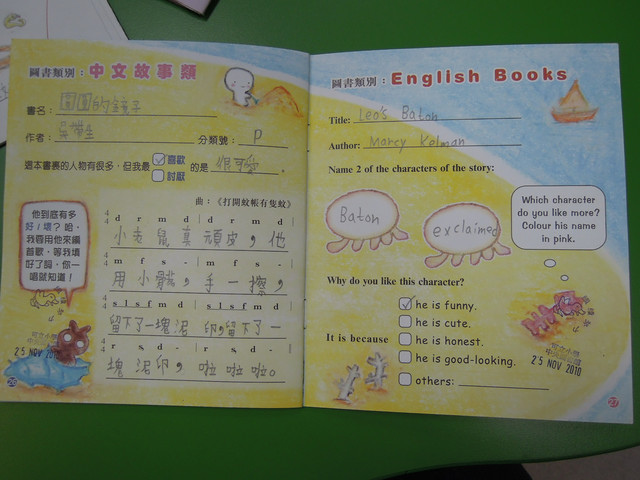 圖書類別：中文故事類
書名：圓圓的鏡子
作者： 分類號：P
這本書裏的人物有很多，但我最 喜歡 的是 很可愛。
討厭
曲：《打開蚊帳有隻蚊》
d r m d d r m d
小老鼠真頑皮，他
m f s - m f s -
用小 手一擦，
s l s f m d s l s f m d
留下了一塊泥 卵，留下了一
r s d - r s d -
塊泥卵，啦啦啦。
他到底有多
好／壞？哈，
我要用他來編
首歌，等我填
好了詞，你一
唱就知道！
25 NOV
26
圖書類別：English Books
Title: Leo's Baton
Author: Marcy Kelman
Name 2 of the characters of the story:
Baton
exclaimed
Which character
do you like more?
Colour his name
in pink.
Why do you like this character?
It is because
he is funny.
he is cute.
he is honest.
he is good-looking.
others:
25 NOV 2010
27